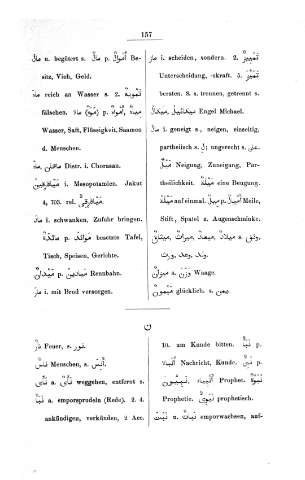 157
مال u. begütert s. مال p. أموال Be-
sitz, Vieh, Geld.
ماه reich an Wasser s. 2. تمويه
fälschen. ماء (موه) p. أمواه, مياه
Wasser, Saft, Flüssigkeit, Saamen
d. Menschen.
Distr. i. Chorasan.
ميافارقين i. Mesopotamien. Jakut
4, 703. rel.
ماد i. schwanken, Zufuhr bringen.
مائدة p. موائد besetzte Tafel,
Tisch, Speisen, Gerichte.
ميدان p. ميادين Rennbahn.
مار i. mit Brod versorgen.
ماز i. scheiden, sondern. 2. تمييز
Unterscheidung, -skraft. 5. تميز
beraten. 8. s. trennen, getrennt s.
ميكائيل, ميكال Engel Michael.
مال i. geneigt s., neigen, einseitig,
partheiisch s. إلى ungerecht s. على
ميل Neigung, Zuneigung, Par-
theilichkeit. ميلة eine Beugung.
ميلة auf einmal. ميل p. أميال Meile,
Stift, Spatel z. Augenschminke.
ميلاد, ميعاد, ميراث, ميثاق s. وثق,
ورث, وعد, ولد.
ميزان s. وزن Waage.
ميمون glücklich. s. يمن
ن
نار Feuer, s. نور.
ناس Menschen, s. أنس
نأى a. نأي weggehen, entfernt s.
نبأ a. emporsprudeln (Rede). 2. 4.
ankündigen, verkünden, 2 Acc.
10. am Kunde bitten. نبأ p.
أنباء Nachricht, Kunde. نبي p.
أنبياء, نبيون Prophet. نبوة
Prophetie. نبوي prophetisch.
نبت u. نبات emporwachsen, auf-